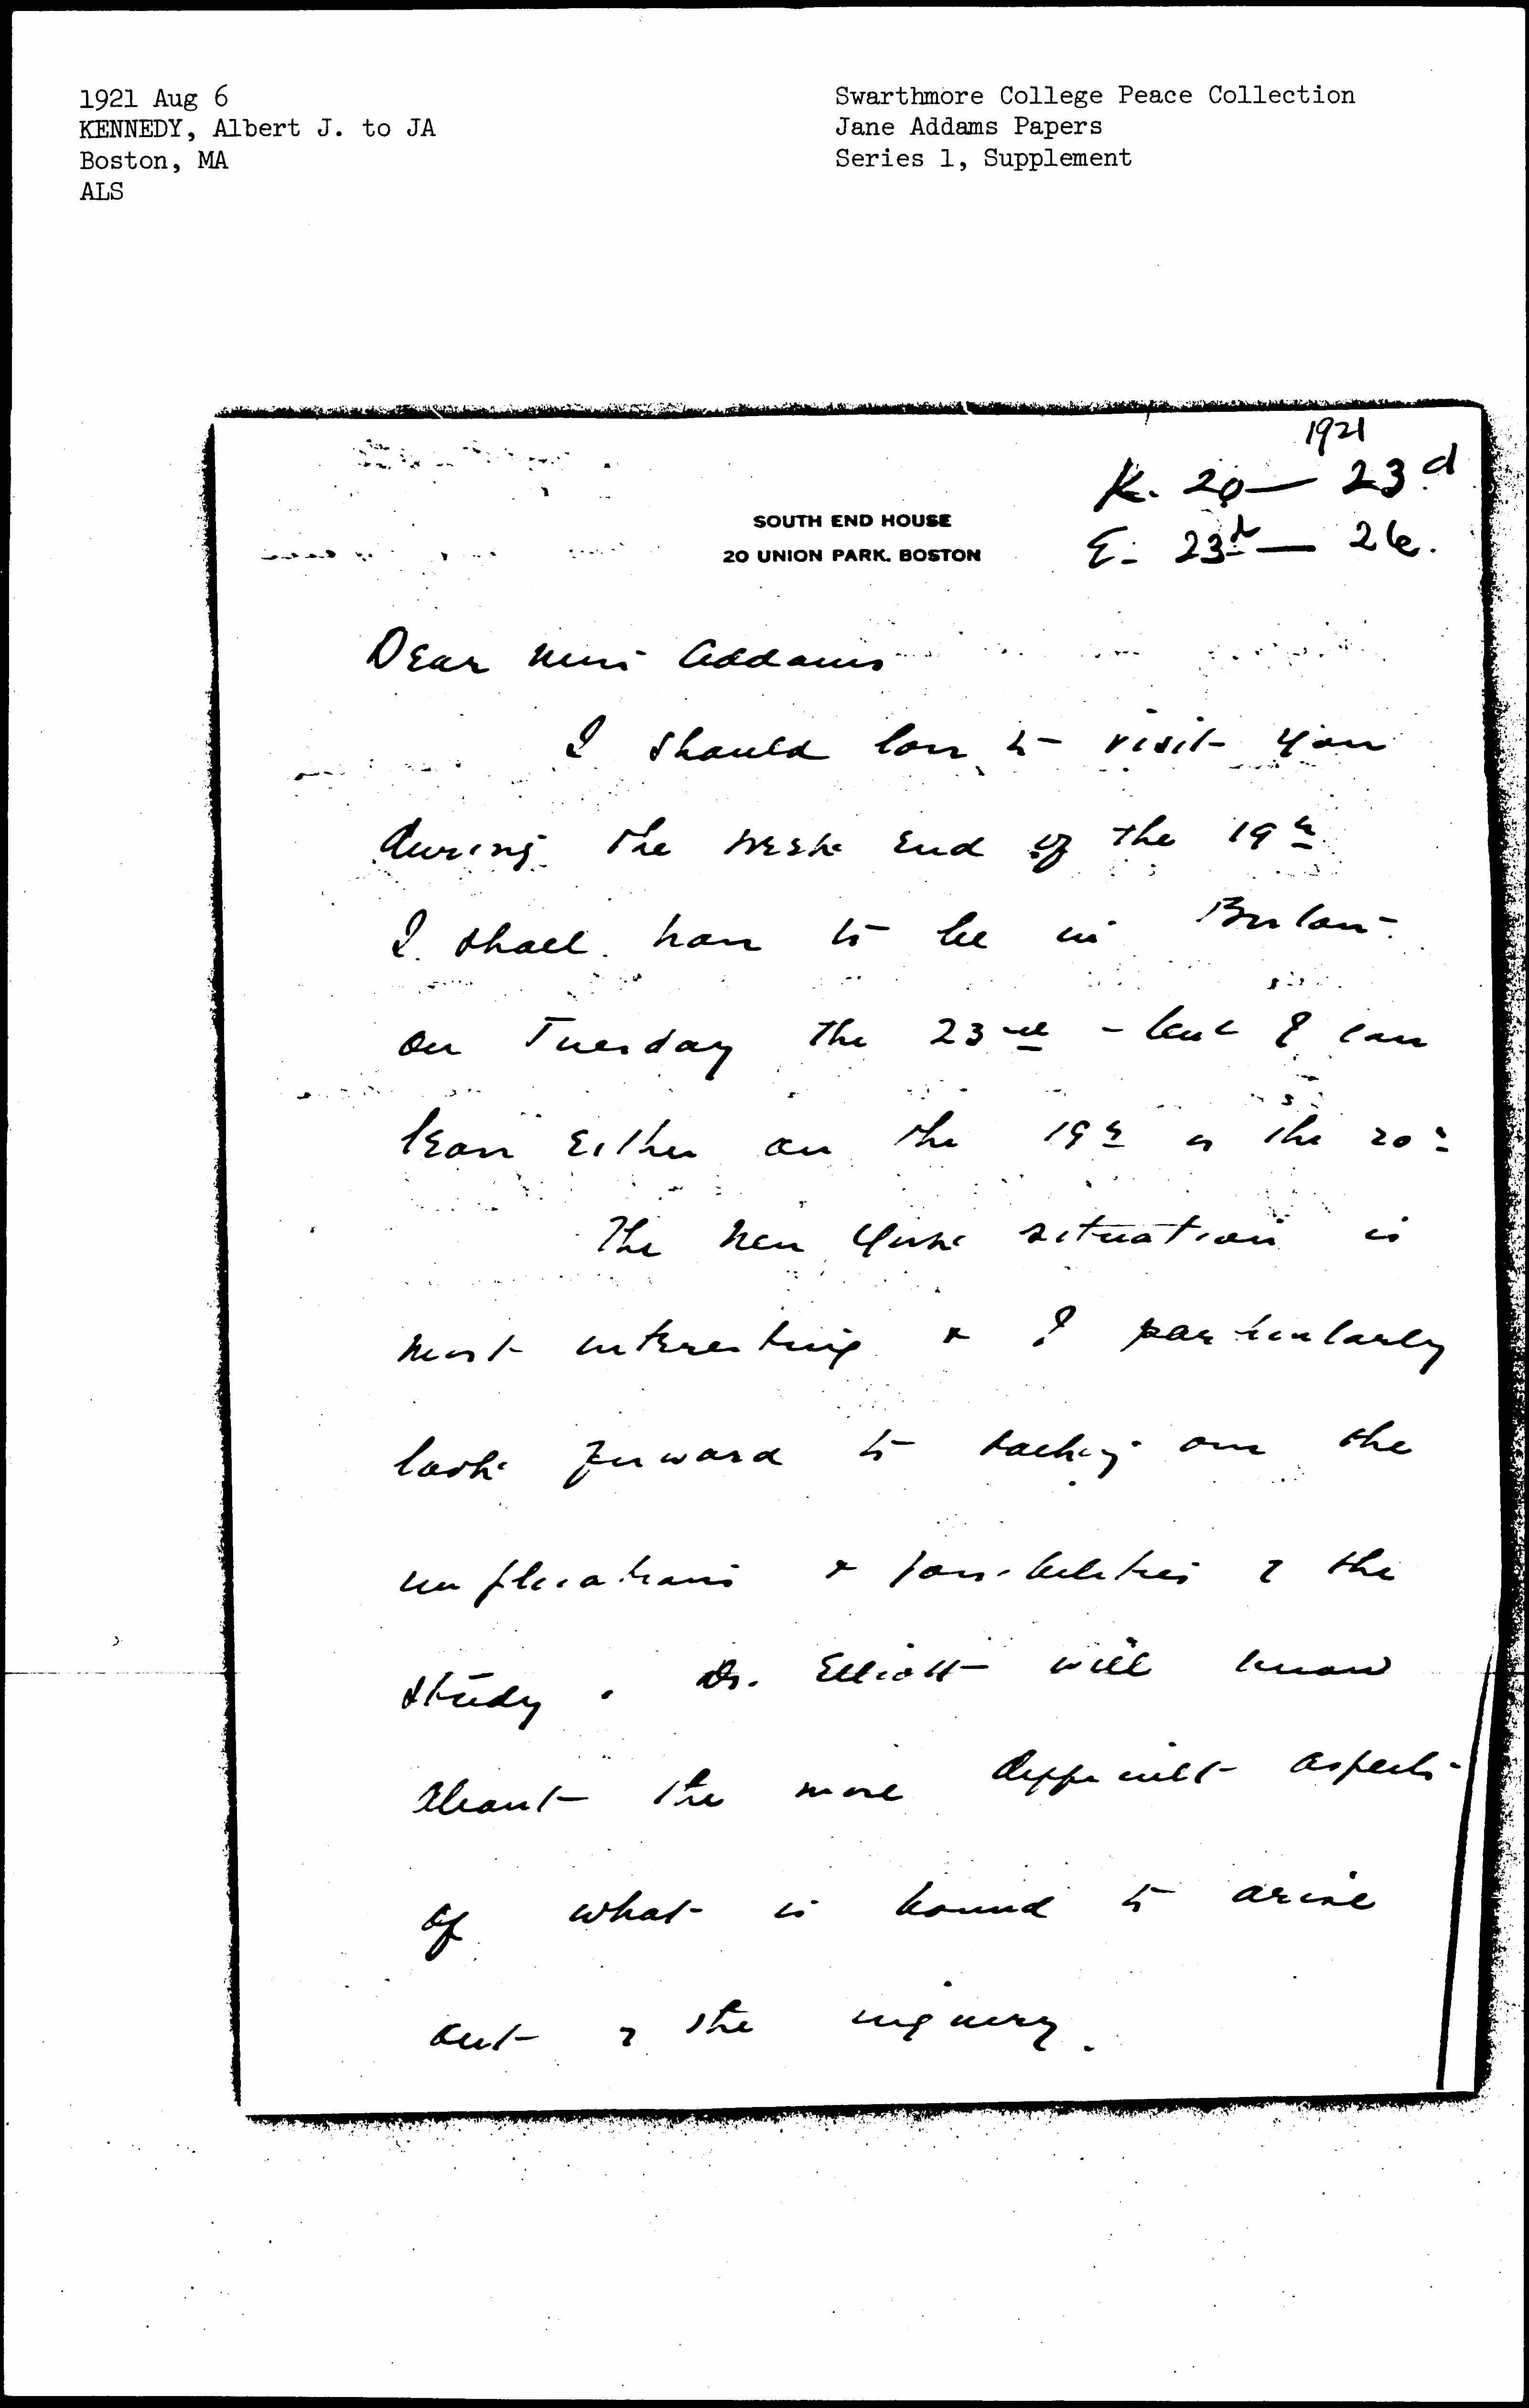 1921 Aug 6
KENNEDY, Albert J. to JA
Boston, MA
ALS
Swarthmore College Peace Collection
Jane Addams Papers
Series 1, Supplement
1921
K. 20 — 23d
E. 23d — 26.
SOUTH END HOUSE
20 UNION PARK. BOSTON
Dear Miss Addams
I should love to visit you
during the week end of the 19th
I shall have to be in Boston
on Tuesday the 23rd - but I can
leave either on the 19th or the 20th
The New York situation is
most interesting & I particularly
look forward to talking over the
implications & possibilities of the
study. Dr. Elliott will know
about the more difficult aspects
of what is bound to arise
out of the inquiry.